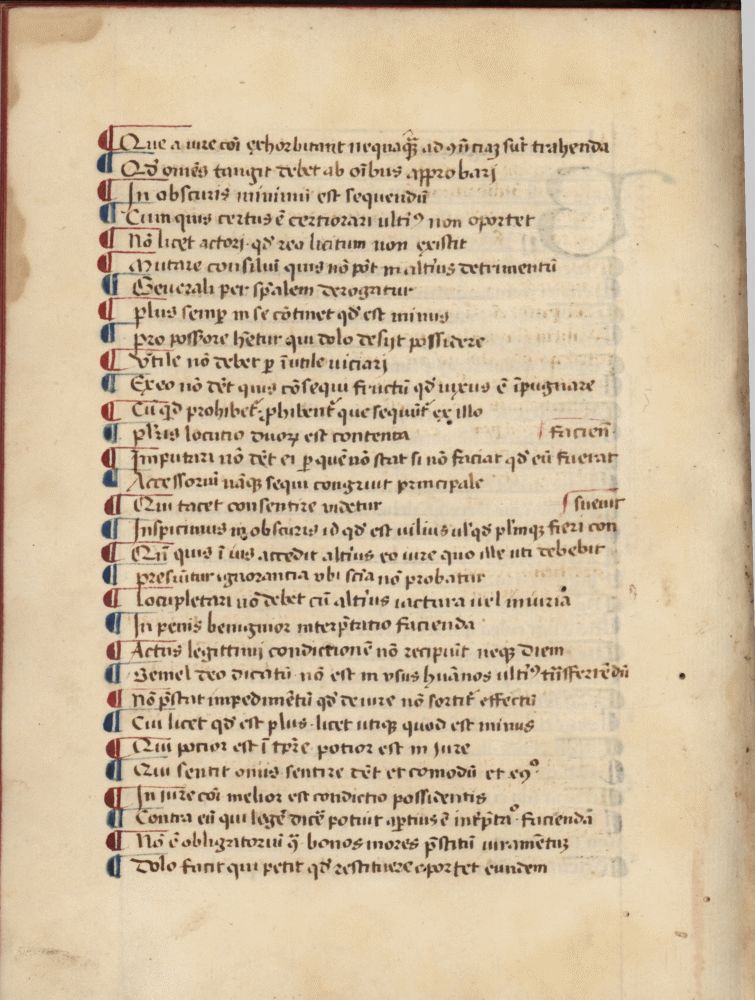 ¶ Que a iure cōi exhorbitant nequaq̄ȝ ad ꝯn̄ciaȝ sūt trahenda
¶ Qd̄ omēs tangit debet ab oībus approbari
¶ In obscuris minimū est sequendū
¶ Cum quis certus ē certiorari ulti⁹ non oportet
¶ Nō licet actori · qd̄ reo licitum non existit
¶ Mutare consiliū quis nō pōt in alti⁹s detrimentū
¶ Generali per sp̄alem derogatur
¶ Plus semp̄ in se cōtinet qd̄ est minus
¶ Pro poss̄ore h̄etur qui dolo desijt possidere
¶ Vtile nō debet ꝑ īutile uiciari
¶ Ex eo nō dēt quis cōsequi fructū qd̄ nixus ē īpugnare
¶ Cū qd̄ prohibet᷑ ꝓhibent᷑ que sequūt᷑ ex illo
¶ Pl̄ris locutio duoꝝ est contenta
¶ Imputari nō dēt ei ꝑ quē nō stat si nō faciat qd̄ eū fuerat faciēn̄
¶ Accessoriū nāqȝ sequi congruit principale
¶ Qui tacet consentire videtur
¶ Inspicimus in obscuris id qd̄ est uilius ul̄ qd̄ pl̄rūqȝ fieri con sueuit
¶ Cū quis ī ius accedit alti⁹s eo iure quo ille uti debebit
¶ Presūitur ignorancia vbi scīa nō probatur
¶ Locupletari nō debet cū alti⁹s iactura uel iniuria
¶ In penis benignior interp̄tatio facienda
¶ Actus legittimi condictionē nō recipiūt neqȝ diem
¶ Semel deo dicatū nō est in vsus hūanos ulti⁹ trāsferrēdū
¶ Nō p̄stat impedimētū qd̄ de iure nō sortit᷑ effectū
¶ Cui licet qd̄ est plus · licet utiqȝ quod est minus
¶ Qui prior est ī tp̄re potior est in jure
¶ Qui sentit onus sentire dēt et comodū et eꝯ°
¶ In jure cōi melior est condictio possidentis
¶ Contra eū qui legē dicē potuit aptius ē int̄p̄ta° faciendā
¶ Nō ē obligatoriū q̄ bonos mores p̄stitū iuramētuȝ
¶ Dolo facit qui petit qd̄ restituere oportet eundem